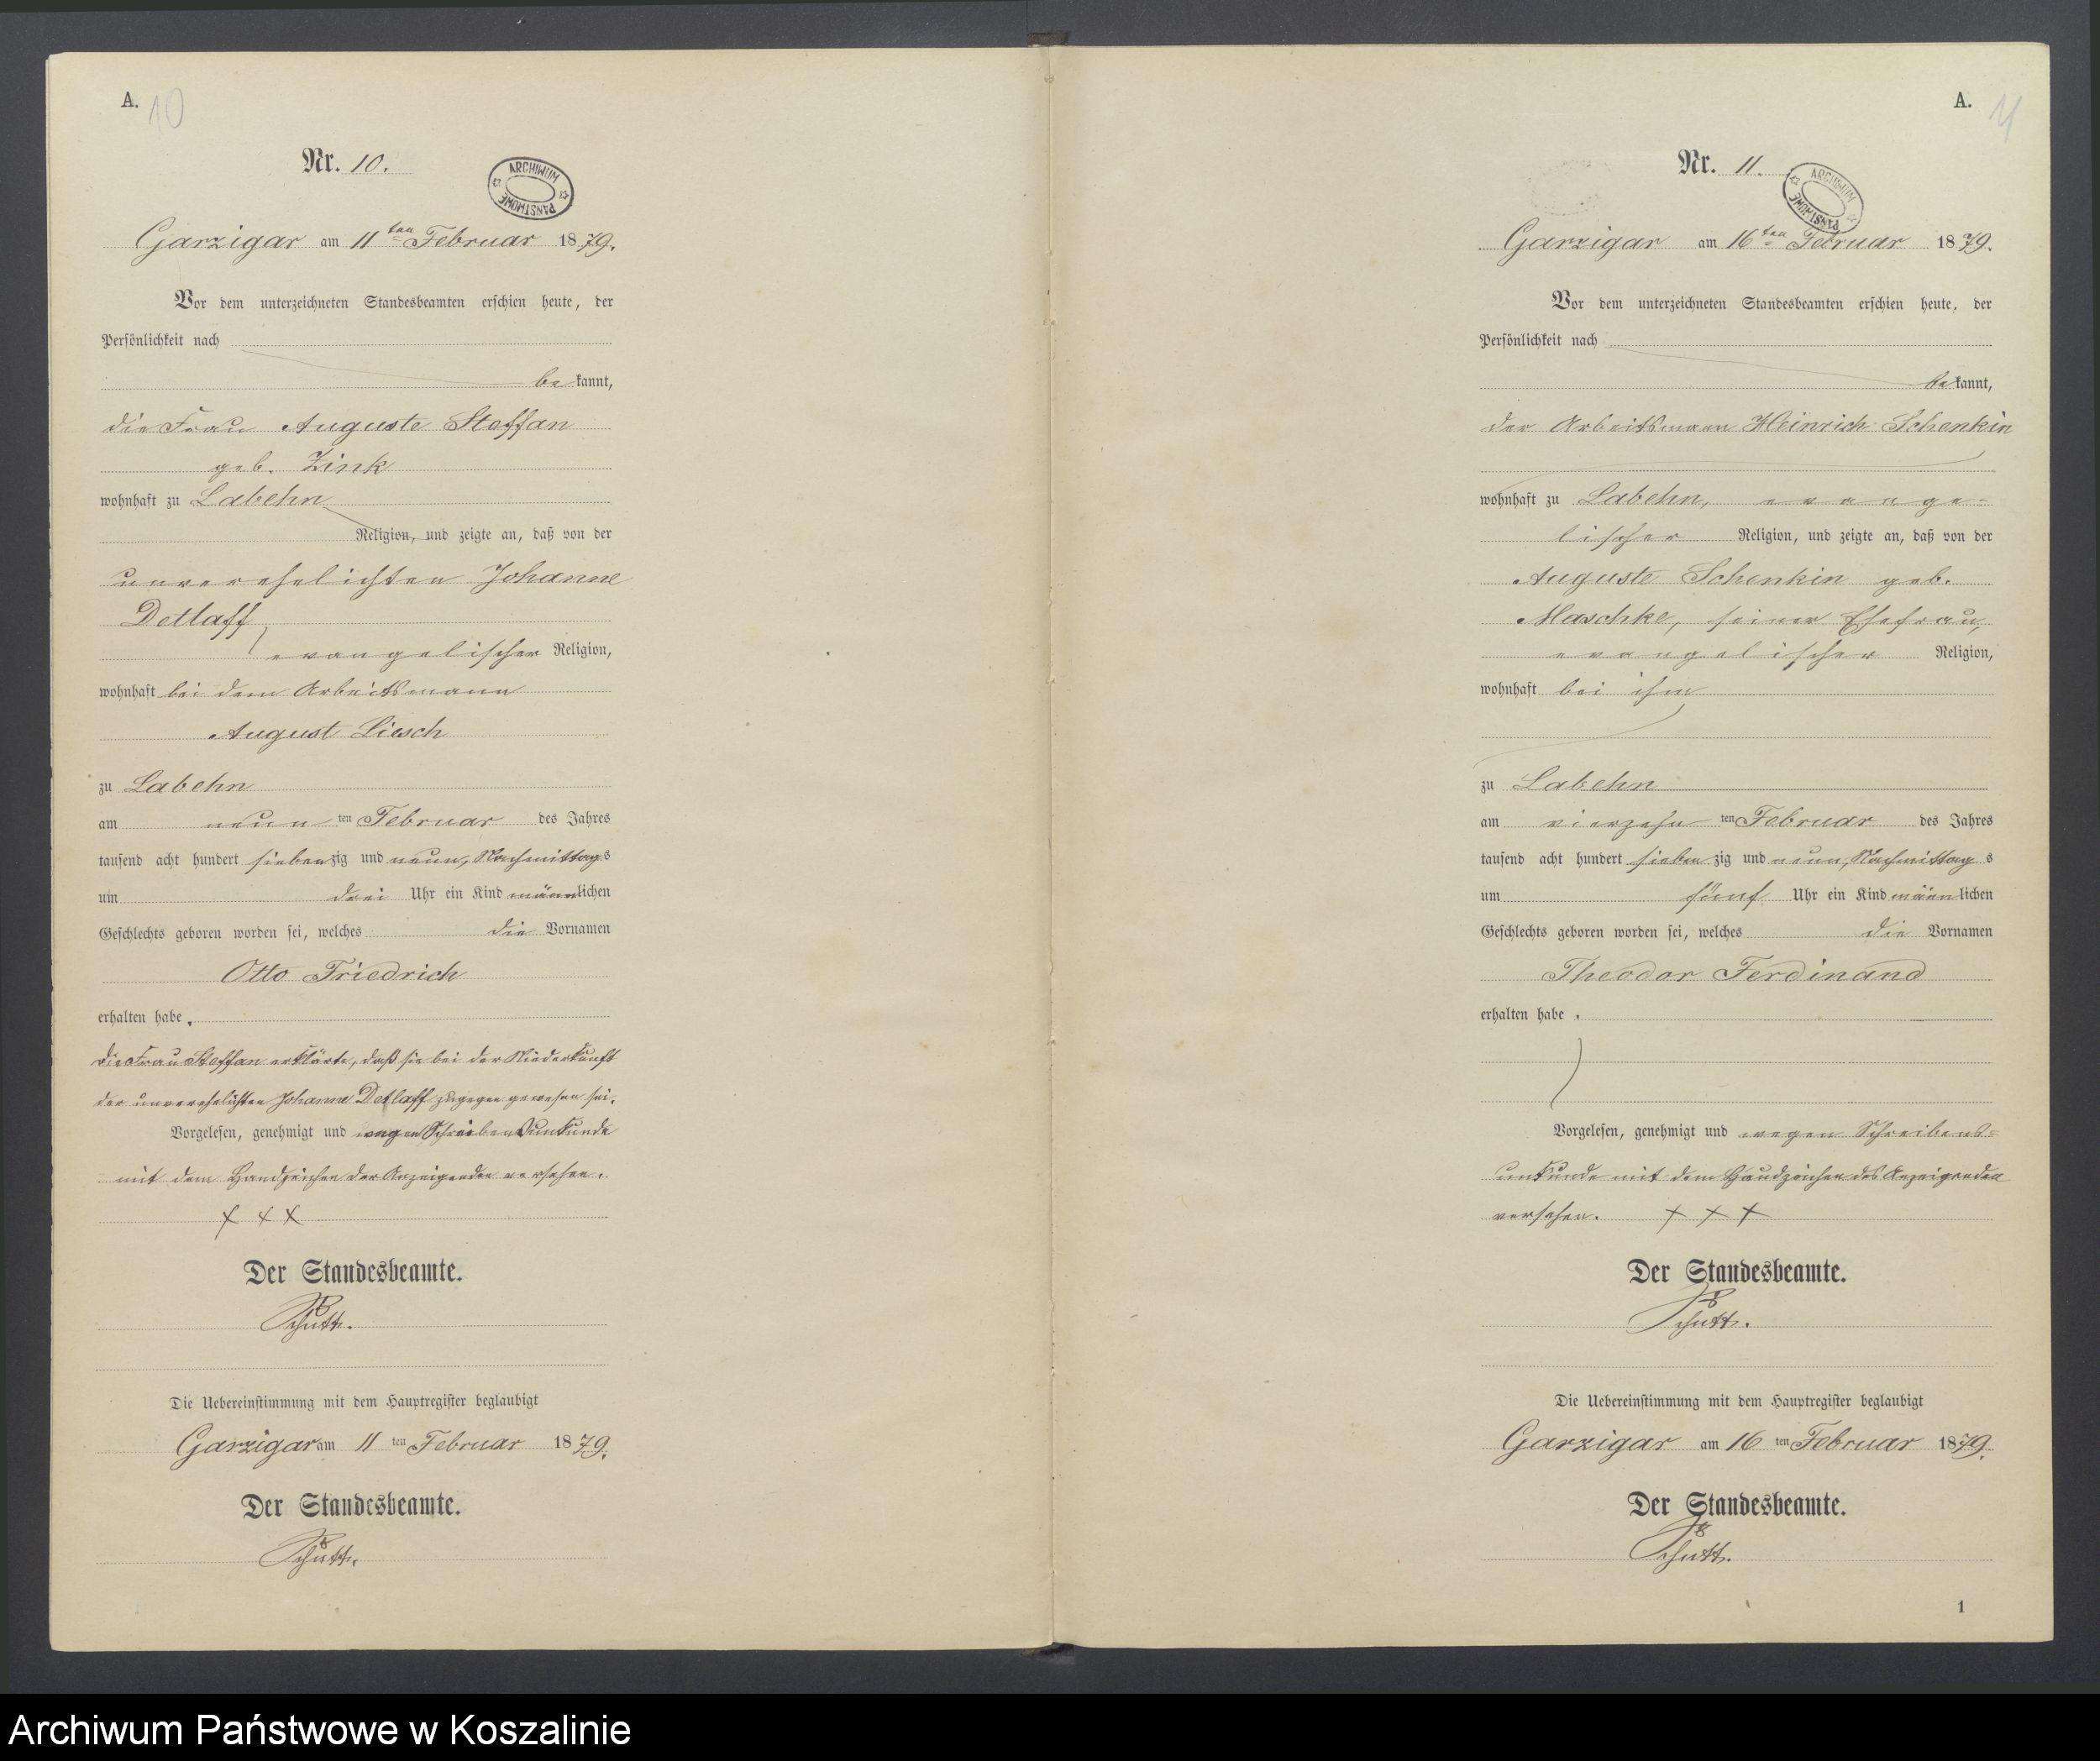 A.
10
Nr. 10.
ARCHIWUM
PAŃSTWOWE
Garzigar am 11ten Februar 1879.
Vor dem unterzeichneten Standesbeamten erschien heute, der
Persönlichkeit nach
bekannt,
die Frau Auguste Steffan
geb. Zink
wohnhaft zu Labehn
Religion, und zeigte an, daß von der
unverehelichten Johanne
Detlaff
evangelischer Religion,
wohnhaft bei dem Arbeitsmann
August Liesch
zu Labehn
am neun ten Februar des Jahres
tausend acht hundert siebenzig und neun, Nachmittags
um drei Uhr ein Kind männlichen
Geschlechts geboren worden sei, welches die Vornamen
Otto Friedrich
erhalten habe.
Die Frau Steffan erklärte, daß sie bei der Niederkunft
der unverehelichten Johanne Detlaff zugegen gewesen sei.
Vorgelesen, genehmigt und wegen Schreibensunkunde
mit dem Handzeichen der Anzeigenden versehen.
x x x
Der Standesbeamte.
Schutt.
Die Uebereinstimmung mit dem Hauptregister beglaubigt
Garzigar am 11 ten Februar 1879.
Der Standesbeamte.
Schutt.
A.
11
Nr. 11.
ARCHIWUM
PAŃSTWOWE
Garzigar am 16ten Februar 1879.
Vor dem unterzeichneten Standesbeamten erschien heute, der
Persönlichkeit nach
bekannt,
der Arbeitsmann Heinrich Schenkin
wohnhaft zu Labehn, evange-
lischer Religion, und zeigte an, daß von der
Auguste Schenkin geb.
Maschke, seiner Ehefrau,
evangelischer Religion,
wohnhaft bei ihm
zu Labehn
am vierzehn ten Februar des Jahres
tausend acht hundert siebenzig und neun, Nachmittags
um fünf Uhr ein Kind männlichen
Geschlechts geboren worden sei, welches die Vornamen
Theodor Ferdinand
erhalten habe.
Vorgelesen, genehmigt und wegen Schreibens-
unkunde mit dem Handzeichen des Anzeigenden
versehen. x x x
Der Standesbeamte.
Schutt.
Die Uebereinstimmung mit dem Hauptregister beglaubigt
Garzigar am 16 ten Februar 1879.
Der Standesbeamte.
Schutt.
1
Archiwum Państwowe w Koszalinie